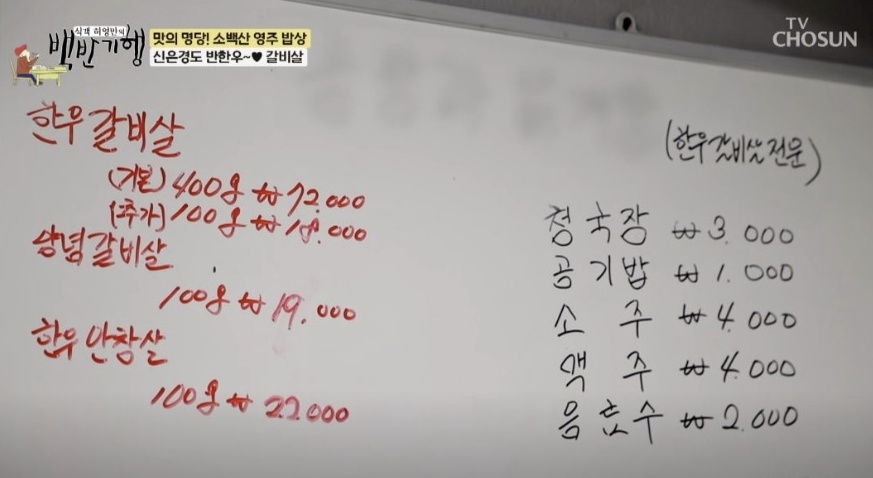 식객 허영만의
백반기행
맛의 명당! 소백산 영주 밥상
신은경도 반한우~♥ 갈비살
TV
CHOSUN
한우갈비살
(기본) 400g ₩72.000
(추가) 100g ₩18.000
양념갈비살
100g ₩19.000
한우안창살
100g ₩22.000
(한우갈비살전문)
청국장 ₩3.000
공기밥 ₩1.000
소주 ₩4.000
맥주 ₩4.000
음료수 ₩2.000